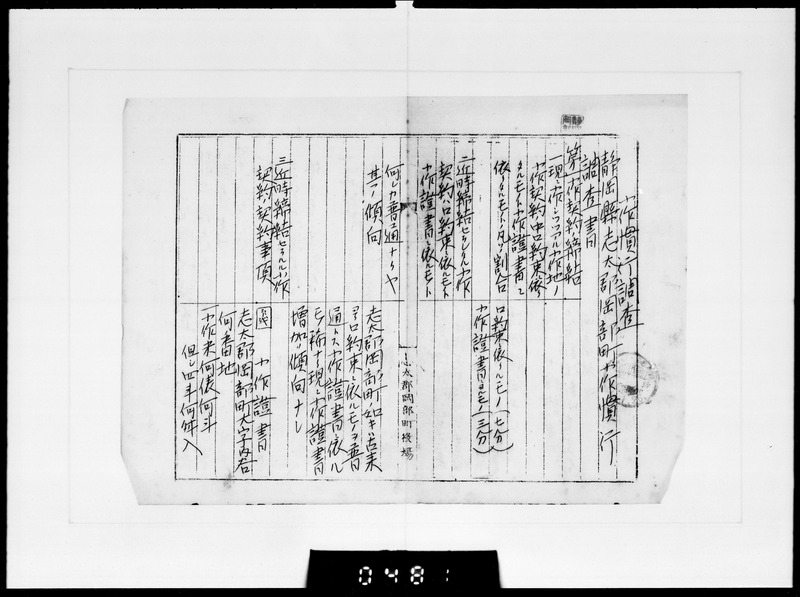 小作慣行調査
静岡縣志太郡岡部町小作慣行
調査書
第一小作契約ノ締結
一、現ニ小作シツツアル小作地ノ
小作契約中口約束ニ依
タルモノト小作證書ニ
依リタルモノトノ割合
口約束ニ依リタルモノ(七分)
小作證書ニヨルモノ(三分)
二、近時締結セラルル小作
契約ハ口約束ニ依ルモノト
小作證書ニ依ルモノト
何レカ普通ナリヤ
其ノ傾向
志太郡岡部町ノ如キハ古来
ヨリ口約束ニ依ルモノヲ普
通トス小作證書ニ依ル
モノ稀ナリ現ニ小作證書
増加ノ傾向ナシ
三、近時締結セラルル小作
契約ノ契約事項
小作證書
志太郡岡部町大字内谷
何番地
小作米何俵何斗
但シ四斗何升入
志太郡岡部町役場
0481